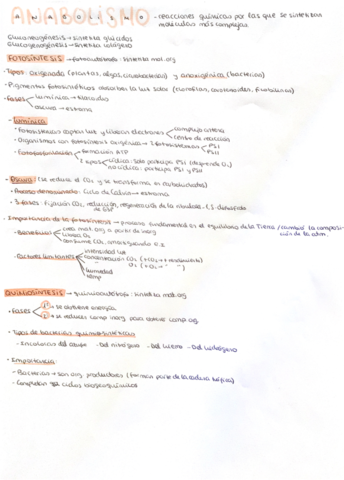 ANABOLISMO - reacciones químicas por las que se sintetizan
moléculas más complejas.
Gluconeogénesis → síntesis glúcidos
Glucogenogénesis → síntesis
FOTOSÍNTESIS → fotoautótrofos: síntesis mat. org
· Tipos: oxigénica (plantas, algas, cianobacterias) y anoxigénica (bacterias)
· Pigmentos fotosintéticos absorben la luz solar (clorofilas, carotenoides, ficobilinas)
· Fases
lumínica → tilacoides
oscura → estroma
- Lumínica
· Fotosistemas captan luz y liberan electrones
complejo antena
centro de reacción
· Organismos con fotosíntesis oxigénica → 2 fotosistemas
PSI
PSII
· Fotofosforilación
formación ATP
2 tipos
cíclica: solo participa PSI
no cíclica: participa PSI y PSII
- Oscura (se reduce el CO2 y se transforma en carbohidratos)
· Proceso denominado: Ciclo de Calvin → estroma
· 3 fases: fijación CO2, reducción, regeneración de la ribulosa-1,5-difosfato
de G3P
· Importancia de la fotosíntesis → proceso fundamental en el equilibrio de la Tierra / cambió la composi-
ción de la atm.
- Beneficios
crea mat. org a partir de inorg
libera O2
consume CO2
- Factores limitantes
intensidad luz
concentración CO2 (+CO2 → + rendimiento)
O2 (+O2 → - ")
humedad
temp
QUIMIOSÍNTESIS → quimioautótrofos: síntesis mat. org
· Fases
1ª → se obtiene energía
2ª → se reducen comp inorg para obtener comp org.
· Tipos de bacterias quimiosintéticas
- Incoloras del azufre - Del nitrógeno - Del hierro - Del hidrógeno
· Importancia:
- Bacterias → son org. productores (forman parte de la cadena trófica)
- Completan ciclos biogeoquímicos